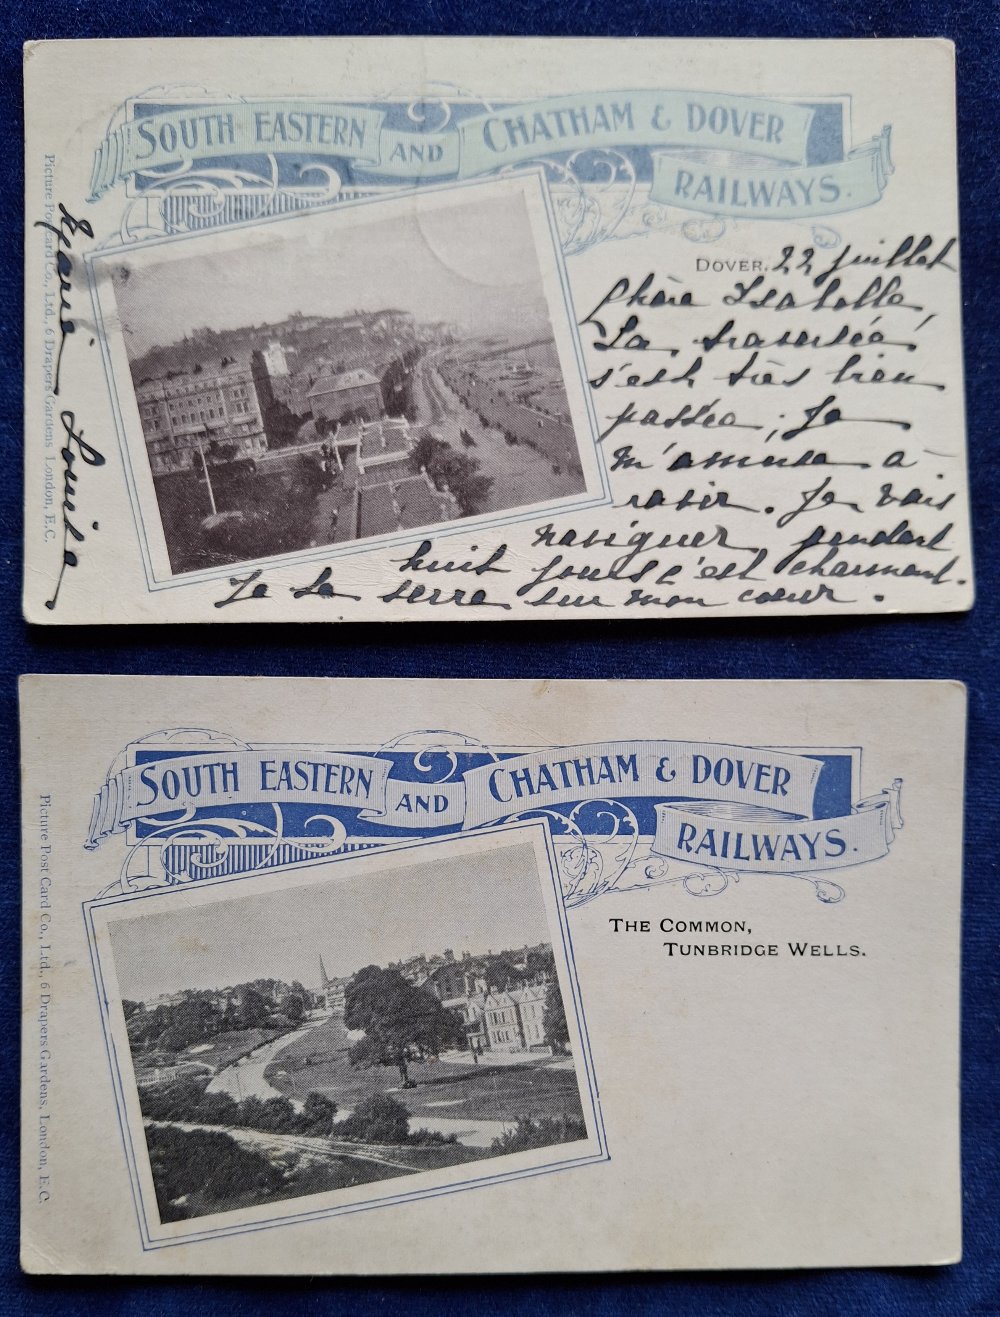 SOUTH EASTERN AND CHATHAM & DOVER
RAILWAYS.
DOVER. 22 juillet
Chère Isabelle,
La traversée
s'est très bien
passée, je
m'amuse à
ravir. Je vais
naviguer pendant
huit jours c'est charmant.
Je te serre sur mon cœur.
Marie Louise
Picture Post Card Co., Ltd., 6 Drapers Gardens London, E.C.
SOUTH EASTERN AND CHATHAM & DOVER
RAILWAYS.
THE COMMON,
TUNBRIDGE WELLS.
Picture Post Card Co., Ltd., 6 Drapers Gardens, London, E.C.